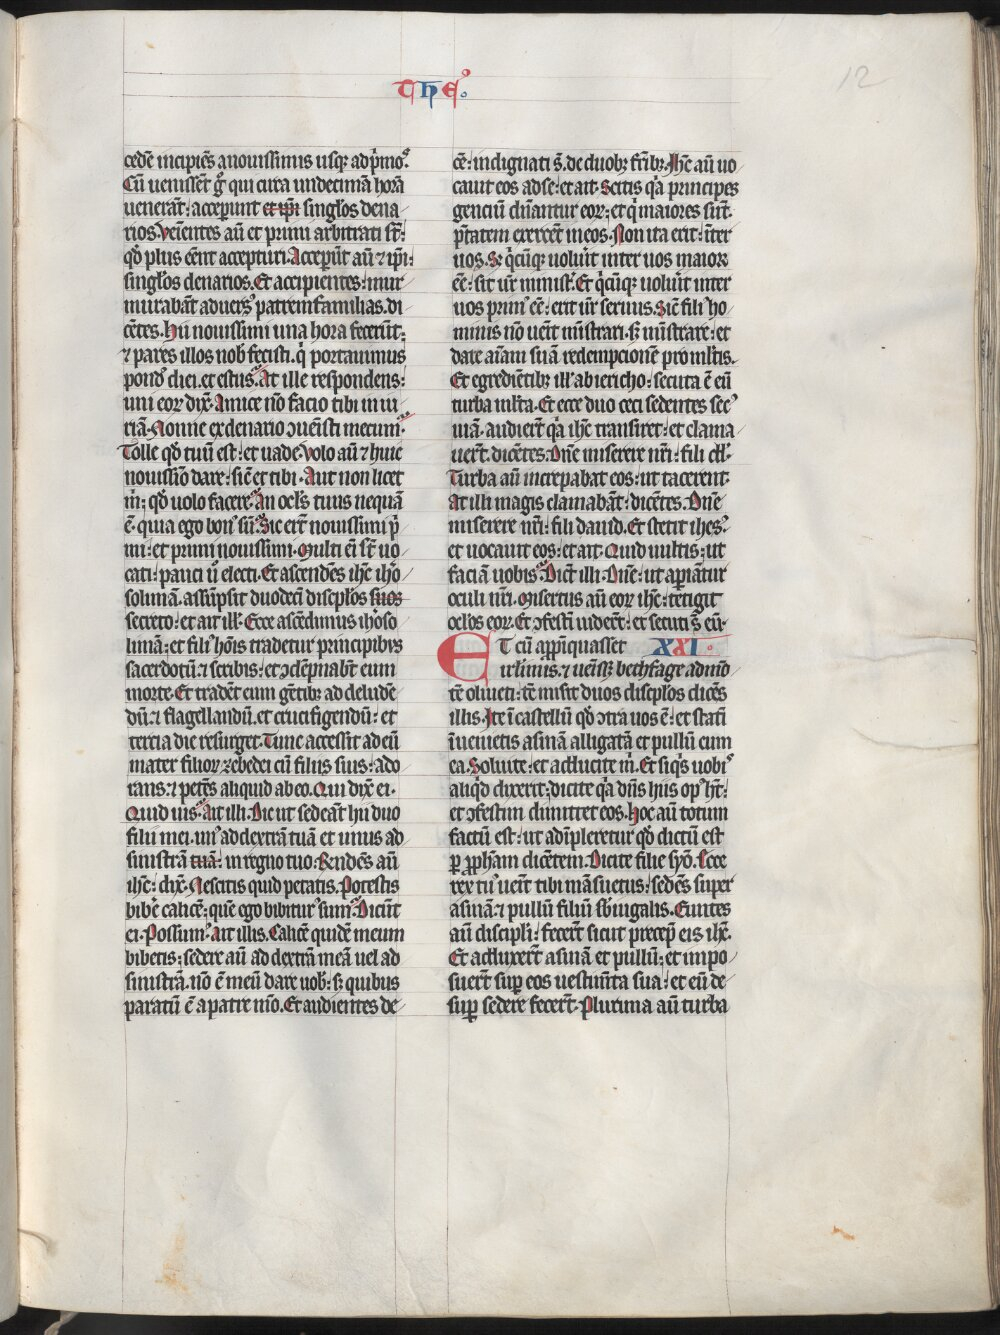 The᷒.
12
cedē incipiēs a nouissimis usq; ad p̄mos.
Cū uenissēt g̊ qui circa undecimā horā
uenerāt: acceperunt et ip̄i singlōs dena
rios. Veīentes aū et primi arbitrati st̄:
qd̄ plus eēnt accepturi. Acceperūt aū ⁊ ip̄i:
singlōs denarios. Et accipientes: mur
murabāt aduers᷒ patremfamilias. di
cētes. Hii nouissimi una hora fecerūt:
⁊ pares illos nob̄ fecisti. q̄ portauimus
pond᷒ diei. et estus. At ille respondens:
uni eoꝝ dix̄. Amice nō facio tibi iniu
riā. Nonne ex denario ꝯuēisti mecum.
Tolle qd̄ tuū est: et uade. Volo aū ⁊ huic
nouissīo dare: sic̄ et tibi. Aut non licet
m̄: qd̄ uolo facere. An ocl̄s tuus nequā
ē. quia ego bon᷒ sū. Sic erūt nouissimi p̄
mi: et primi nouissimi. Multi eī st̄ uo
cati: pauci u̅ electi. Et ascendēs ihc̄ ih̄o
solimā. assūpsit duodecī discpl̄os suos
secreto: et ait ill̄. Ecce ascēdimus ih̄oso
limā: et fili᷒ hōīs tradetur principibus
sacerdotū. ⁊ scribis: et ꝯdēpnabūt eum
morte. Et tradēt eum gētib; ad deludē
dū. ⁊ flagellandū. et crucifigendū: et
tercia die resurget. Tunc accessit ad eū
mater filioꝝ zebedei cū filiis suis: ado
rans: ⁊ petēs aliquid ab eo. Qui dix̄ ei.
Quid uis. Ait illi. Dic ut sedeāt hii duo
filii mei. un᷒ ad dextrā tuā et unus ad
sinistrā tuā: in regno tuo. Rn̄dēs aū
ihc̄: dix̄. Nescitis quid petatis. Potestis
bibe̅ calicē: quē ego bibitur᷒ sum. Dicūt
ei. Possum᷒. Ait illis. Calicē quidē meum
bibetis: sedere aū ad dextrā meā uel ad
sinistrā. nō ē meū dare uob̄: s; quibus
paratū ē a patre m̄o. Et audientes de
cē: indignati s̄. de duob; fr̄ib;. Ihc̄ aū uo
cauit eos ad se: et ait. Scitis q̄a principes
genciū dn̄antur eoꝝ: et q̄ maiores sūt.
p̄tatem exercēt in eos. Non ita erit: īter
uos. S; q̄cūq; uolūit inter uos maior
eē: sit ur̄ minist᷒. Et q̄cūq; uolūit inter
uos prim᷒ eē: erit ur̄ seruus. Sic̄ fili᷒ ho
minis nō uēit mīstrari. s; mīstrare: et
dare aīam suā redempcionē pro ml̄tis.
Et egrediētib; ill̄ ab iericho: secuta ē eū
turba ml̄ta. Et ecce duo ceci sedentes sec᷒
uiā. audierūt q̄a ihc̄ transiret: et clama
uer̄t. dicētes. Dn̄e miserere nr̄i: fili dd̄.
Turba aū increpabat eos: ut tacerent.
At illi magis clamabāt: dicētes. Dn̄e
miserere nr̄i: fili dauid. Et stetit ihes᷒.
et uocauit eos: et ait. Quid uultis: ut
faciā uobis. Dicūt illi. Dn̄e: ut aperiātur
oculi nr̄i. Misertus aū eoꝝ ihc̄: tetigit
ocl̄os eoꝝ. Et ꝯfestī uider̄t: et secuti s̄ eū.
ET cū appīquasset XXI.
irl̄imis. ⁊ uēiss; bethfage ad mō
tē oliueti: tc̄ misit duos discpl̄os dicēs
illis. Ite ī castellū qd̄ ꝯtra uos ē: et statī
īuenietis asinā alligatā et pullū cum
ea. Soluite: et adducite m̄. Et siq̄s uobis᷒
aliq̄d dixerit: dicite q̄a dn̄s hiis op᷒ ht̄:
et ꝯfestim dimittet eos. Hoc aū totum
factū est: ut adīpleretur qd̄ dictū est
ꝑ ꝓph̄am dicētem. Dicite filie syō. Ecce
rex tu᷒ uēit tibi māsuetus: sedēs super
asinā. ⁊ pullū filiū sb̄iugalis. Euntes
aū discipl̄i: fecer̄t sicut precep̄ eis ihc̄.
Et adduxer̄t asinā et pullū: et impo
suer̄t suꝑ eos uestim̄ta sua: et eū de
suꝑ sedere fecer̄t. Plurima aū turba